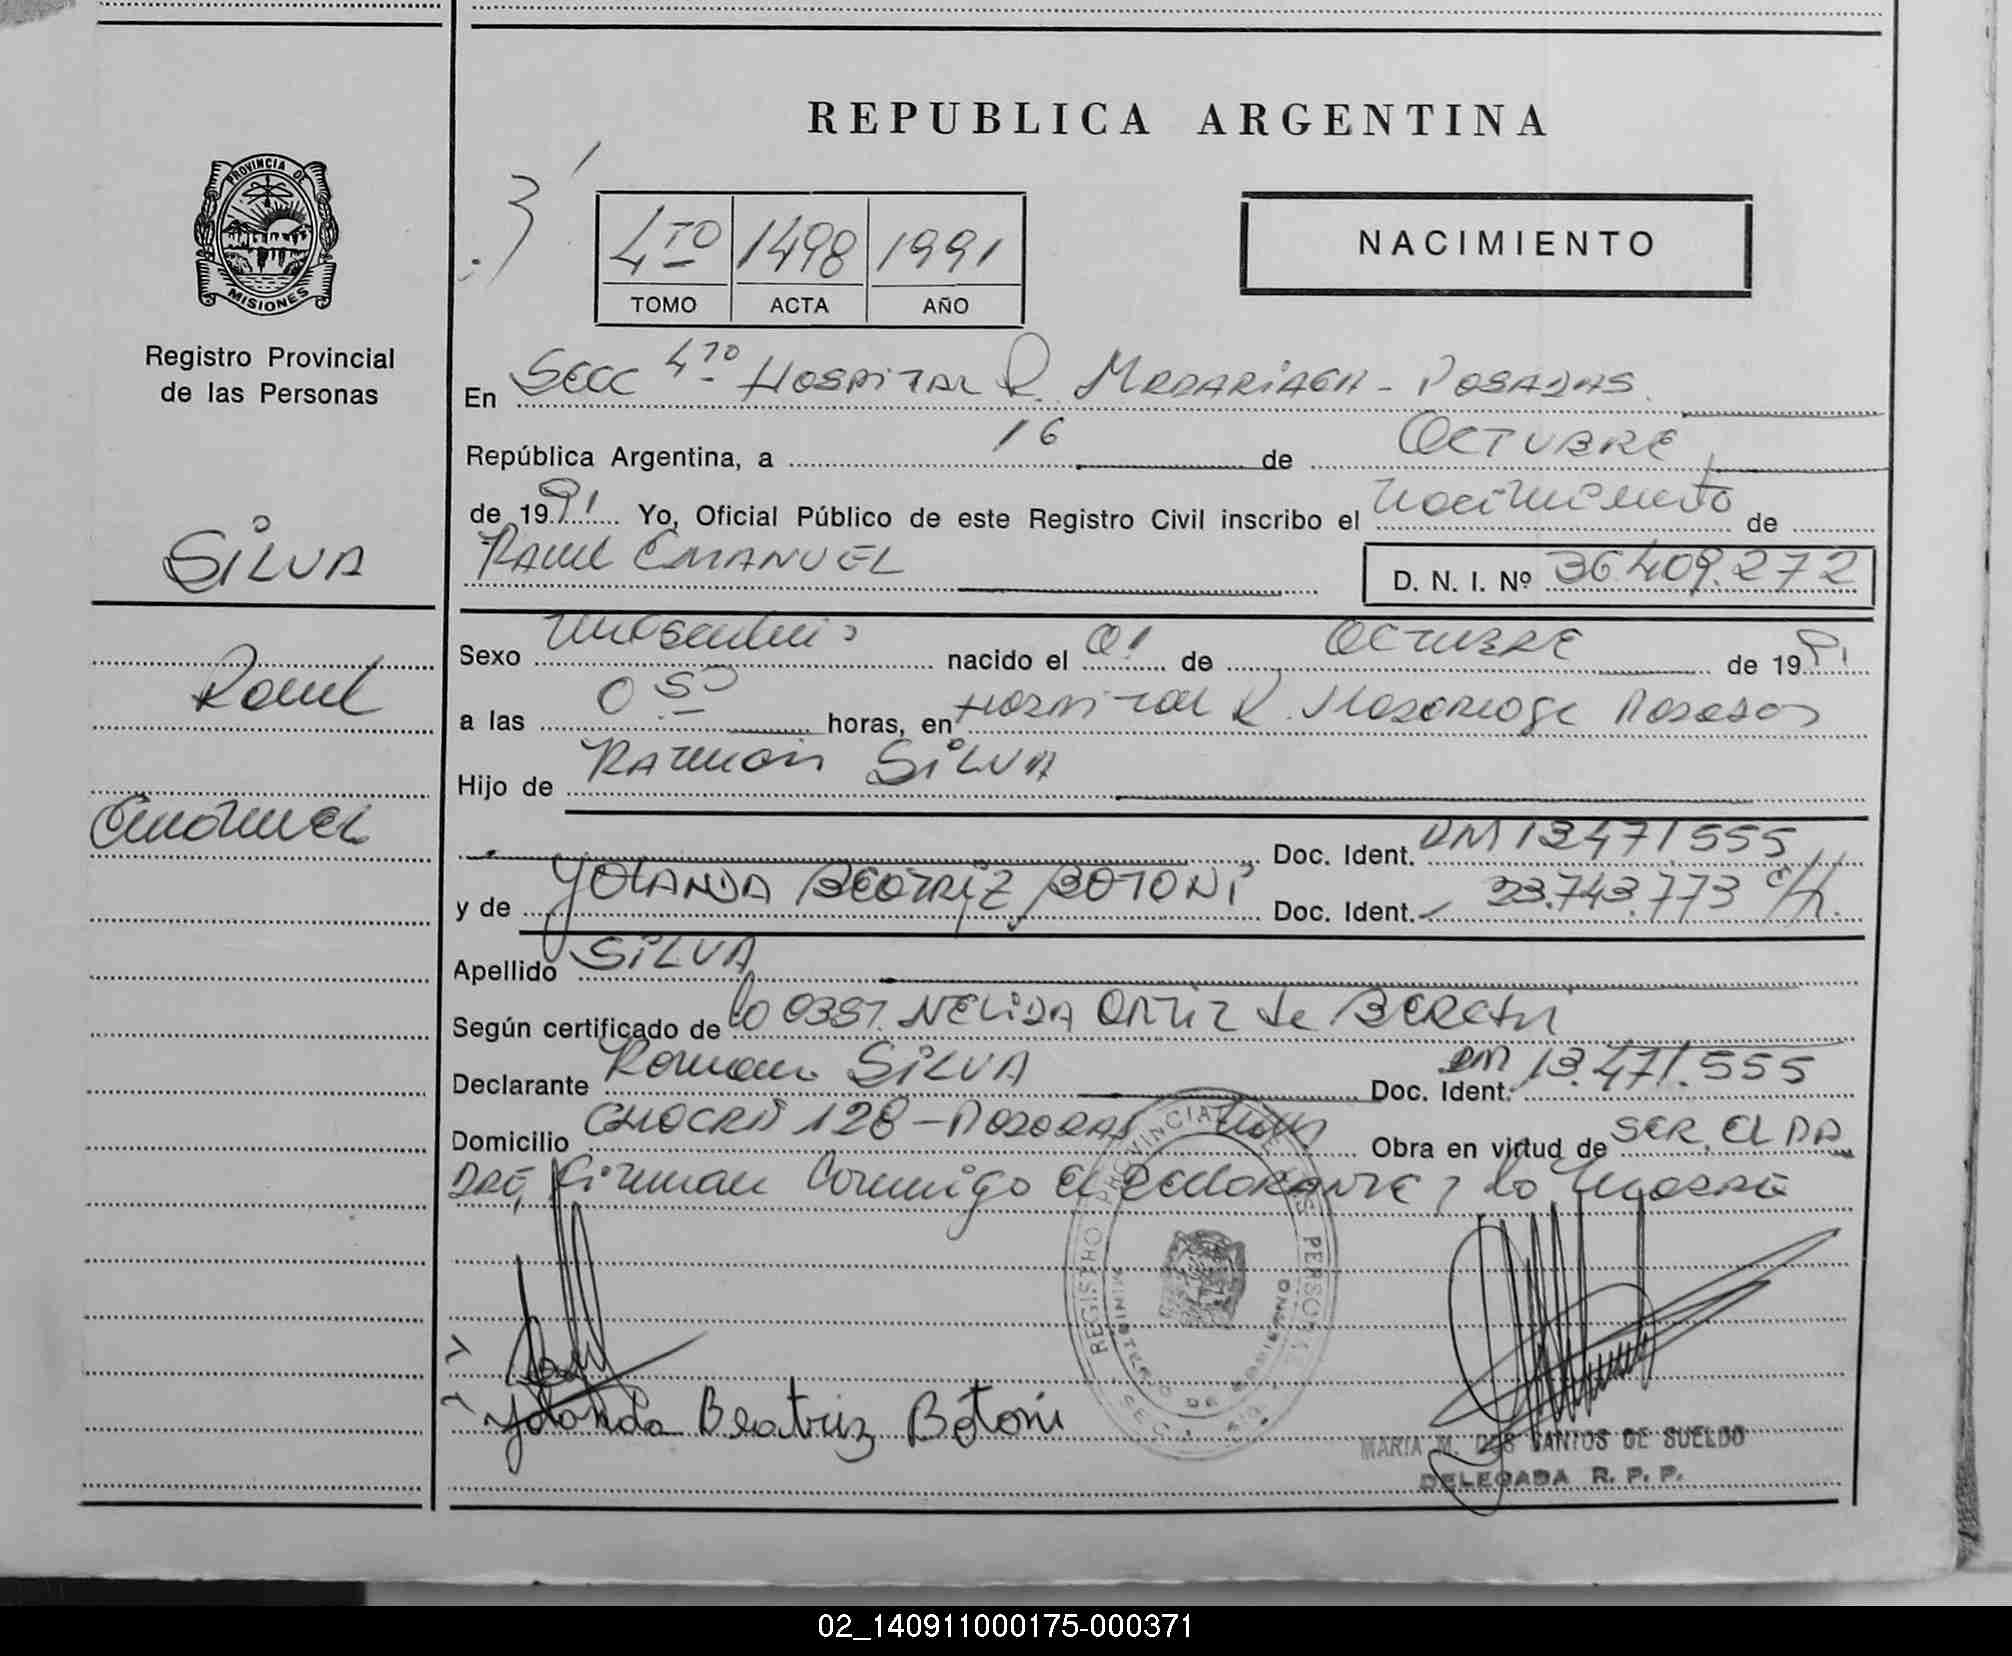 REPUBLICA ARGENTINA
PROVINCIA DE
MISIONES
Registro Provincial
de las Personas
4TO 1498 1991
TOMO ACTA AÑO
NACIMIENTO
En Secc 4TO Hospital R. Madariaga - Posadas
República Argentina, a 16 de Octubre
de 1991 Yo, Oficial Público de este Registro Civil inscribo el nacimiento de
Raul Emanuel D. N. I. Nº 36.409.272
SILVA
Raul
Emanuel
Sexo masculino nacido el 01 de Octubre de 1991
a las 0 50 horas, en Hospital R. Madariaga Posadas
Hijo de Ramon Silva
Doc. Ident. DM 13.471.555
y de Yolanda Beatriz Botoni Doc. Ident. 23.743.773
Apellido SILVA
Según certificado de la Nelida Ortiz de
Declarante Ramon Silva Doc. Ident. DM 13.471.555
Domicilio 128 - Posadas Obra en virtud de Ser. el Pa
dre, Firman Conmigo el Declarante y la Madre
REGISTRO PROVINCIAL DE LAS PERSONAS
MINISTERIO DE GOBIERNO
Yolanda Beatriz Botoni
MARIA M. DOS SANTOS DE SUELDO
DELEGADA R. P. P.
02_140911000175-000371